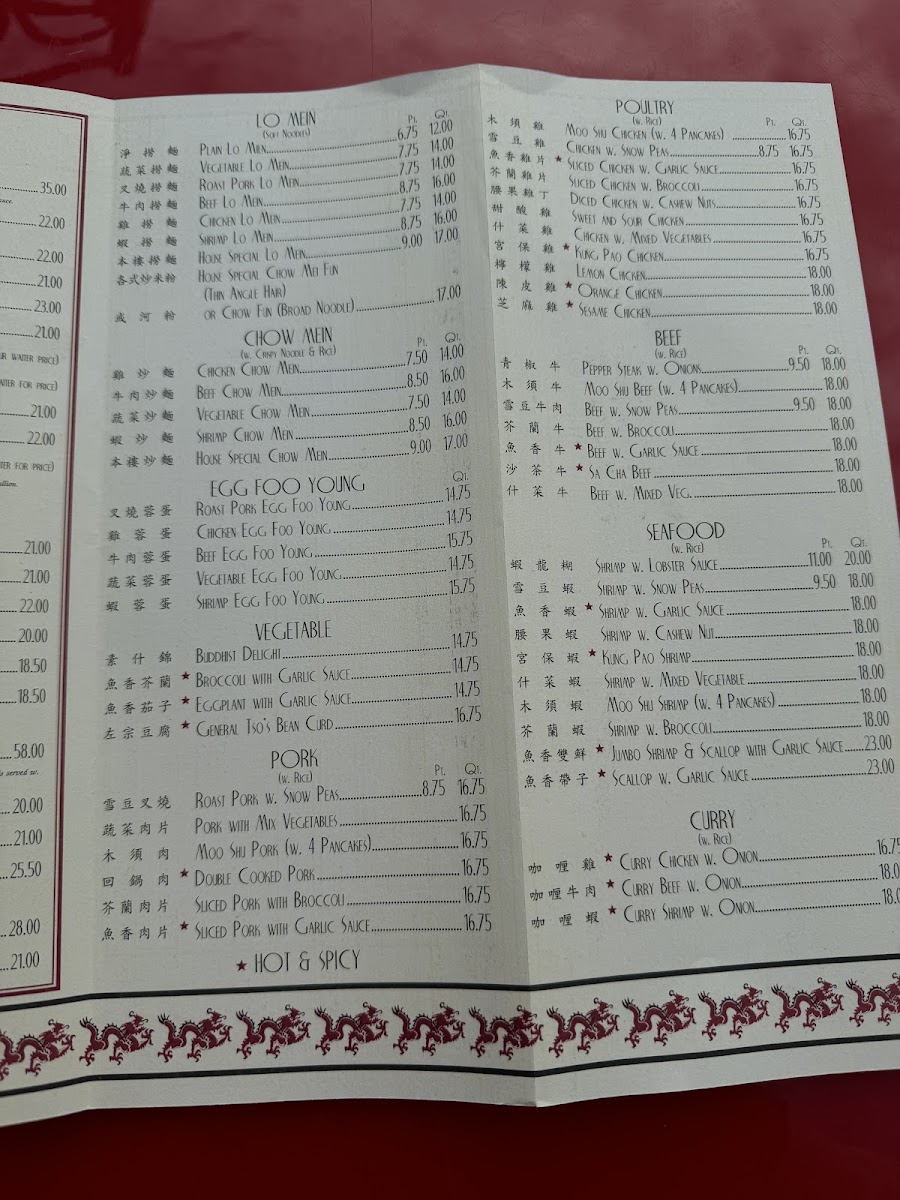 35.00
22.00
22.00
21.00
23.00
21.00
UR WAITER PRICE)
WAITER FOR PRICE)
21.00
22.00
ITER FOR PRICE)
21.00
21.00
22.00
20.00
18.50
18.50
58.00
served w.
20.00
21.00
25.50
28.00
21.00
LO MEIN
(SOFT NOODLES)
PT. QT.
淨撈麵 PLAIN LO MEIN 6.75 12.00
蔬菜撈麵 VEGETABLE LO MEIN 7.75 14.00
叉燒撈麵 ROAST PORK LO MEIN 7.75 14.00
牛肉撈麵 BEEF LO MEIN 8.75 16.00
雞撈麵 CHICKEN LO MEIN 7.75 14.00
蝦撈麵 SHRIMP LO MEIN 8.75 16.00
本樓撈麵 HOUSE SPECIAL LO MEIN 9.00 17.00
各式炒米粉 HOUSE SPECIAL CHOW MEI FUN
(THIN ANGLE HAIR)
或河粉 OR CHOW FUN (BROAD NOODLE) 17.00
CHOW MEIN
(W. CRISPY NOODLE & RICE)
PT. QT.
雞炒麵 CHICKEN CHOW MEIN 7.50 14.00
牛肉炒麵 BEEF CHOW MEIN 8.50 16.00
蔬菜炒麵 VEGETABLE CHOW MEIN 7.50 14.00
蝦炒麵 SHRIMP CHOW MEIN 8.50 16.00
本樓炒麵 HOUSE SPECIAL CHOW MEIN 9.00 17.00
EGG FOO YOUNG
QT.
叉燒蓉蛋 ROAST PORK EGG FOO YOUNG 14.75
雞蓉蛋 CHICKEN EGG FOO YOUNG 14.75
牛肉蓉蛋 BEEF EGG FOO YOUNG 15.75
蔬菜蓉蛋 VEGETABLE EGG FOO YOUNG 14.75
蝦蓉蛋 SHRIMP EGG FOO YOUNG 15.75
VEGETABLE
素什錦 BUDDHIST DELIGHT 14.75
魚香芥蘭 ★ BROCCOLI WITH GARLIC SAUCE 14.75
魚香茄子 ★ EGGPLANT WITH GARLIC SAUCE 14.75
左宗豆腐 ★ GENERAL TSO'S BEAN CURD 16.75
PORK
(W. RICE)
PT. QT.
雪豆叉燒 ROAST PORK W. SNOW PEAS 8.75 16.75
蔬菜肉片 PORK WITH MIX VEGETABLES 16.75
木須肉 MOO SHU PORK (W. 4 PANCAKES) 16.75
回鍋肉 ★ DOUBLE COOKED PORK 16.75
芥蘭肉片 SLICED PORK WITH BROCCOLI 16.75
魚香肉片 ★ SLICED PORK WITH GARLIC SAUCE 16.75
★ HOT & SPICY
POULTRY
(W. RICE)
PT. QT.
木須雞 MOO SHU CHICKEN (W. 4 PANCAKES) 16.75
雪豆雞 CHICKEN W. SNOW PEAS 8.75 16.75
魚香雞片 ★ SLICED CHICKEN W. GARLIC SAUCE 16.75
芥蘭雞片 SLICED CHICKEN W. BROCCOLI 16.75
腰果雞丁 DICED CHICKEN W. CASHEW NUTS 16.75
甜酸雞 SWEET AND SOUR CHICKEN 16.75
什菜雞 CHICKEN W. MIXED VEGETABLES 16.75
宮保雞 ★ KUNG PAO CHICKEN 16.75
檸檬雞 LEMON CHICKEN 18.00
陳皮雞 ★ ORANGE CHICKEN 18.00
芝麻雞 ★ SESAME CHICKEN 18.00
BEEF
(W. RICE)
PT. QT.
青椒牛 PEPPER STEAK W. ONIONS 9.50 18.00
木須牛 MOO SHU BEEF (W. 4 PANCAKES) 18.00
雪豆牛肉 BEEF W. SNOW PEAS 9.50 18.00
芥蘭牛 BEEF W. BROCCOLI 18.00
魚香牛 ★ BEEF W. GARLIC SAUCE 18.00
沙茶牛 ★ SA CHA BEEF 18.00
什菜牛 BEEF W. MIXED VEG. 18.00
SEAFOOD
(W. RICE)
PT. QT.
蝦龍糊 SHRIMP W. LOBSTER SAUCE 11.00 20.00
雪豆蝦 SHRIMP W. SNOW PEAS 9.50 18.00
魚香蝦 ★ SHRIMP W. GARLIC SAUCE 18.00
腰果蝦 SHRIMP W. CASHEW NUT 18.00
宮保蝦 ★ KUNG PAO SHRIMP 18.00
什菜蝦 SHRIMP W. MIXED VEGETABLE 18.00
木須蝦 MOO SHU SHRIMP (W. 4 PANCAKES) 18.00
芥蘭蝦 SHRIMP W. BROCCOLI 18.00
魚香雙鮮 ★ JUMBO SHRIMP & SCALLOP WITH GARLIC SAUCE 23.00
魚香帶子 ★ SCALLOP W. GARLIC SAUCE 23.00
CURRY
(W. RICE)
咖喱雞 ★ CURRY CHICKEN W. ONION 16.75
咖喱牛肉 ★ CURRY BEEF W. ONION 18.0
咖喱蝦 ★ CURRY SHRIMP W. ONION 18.0